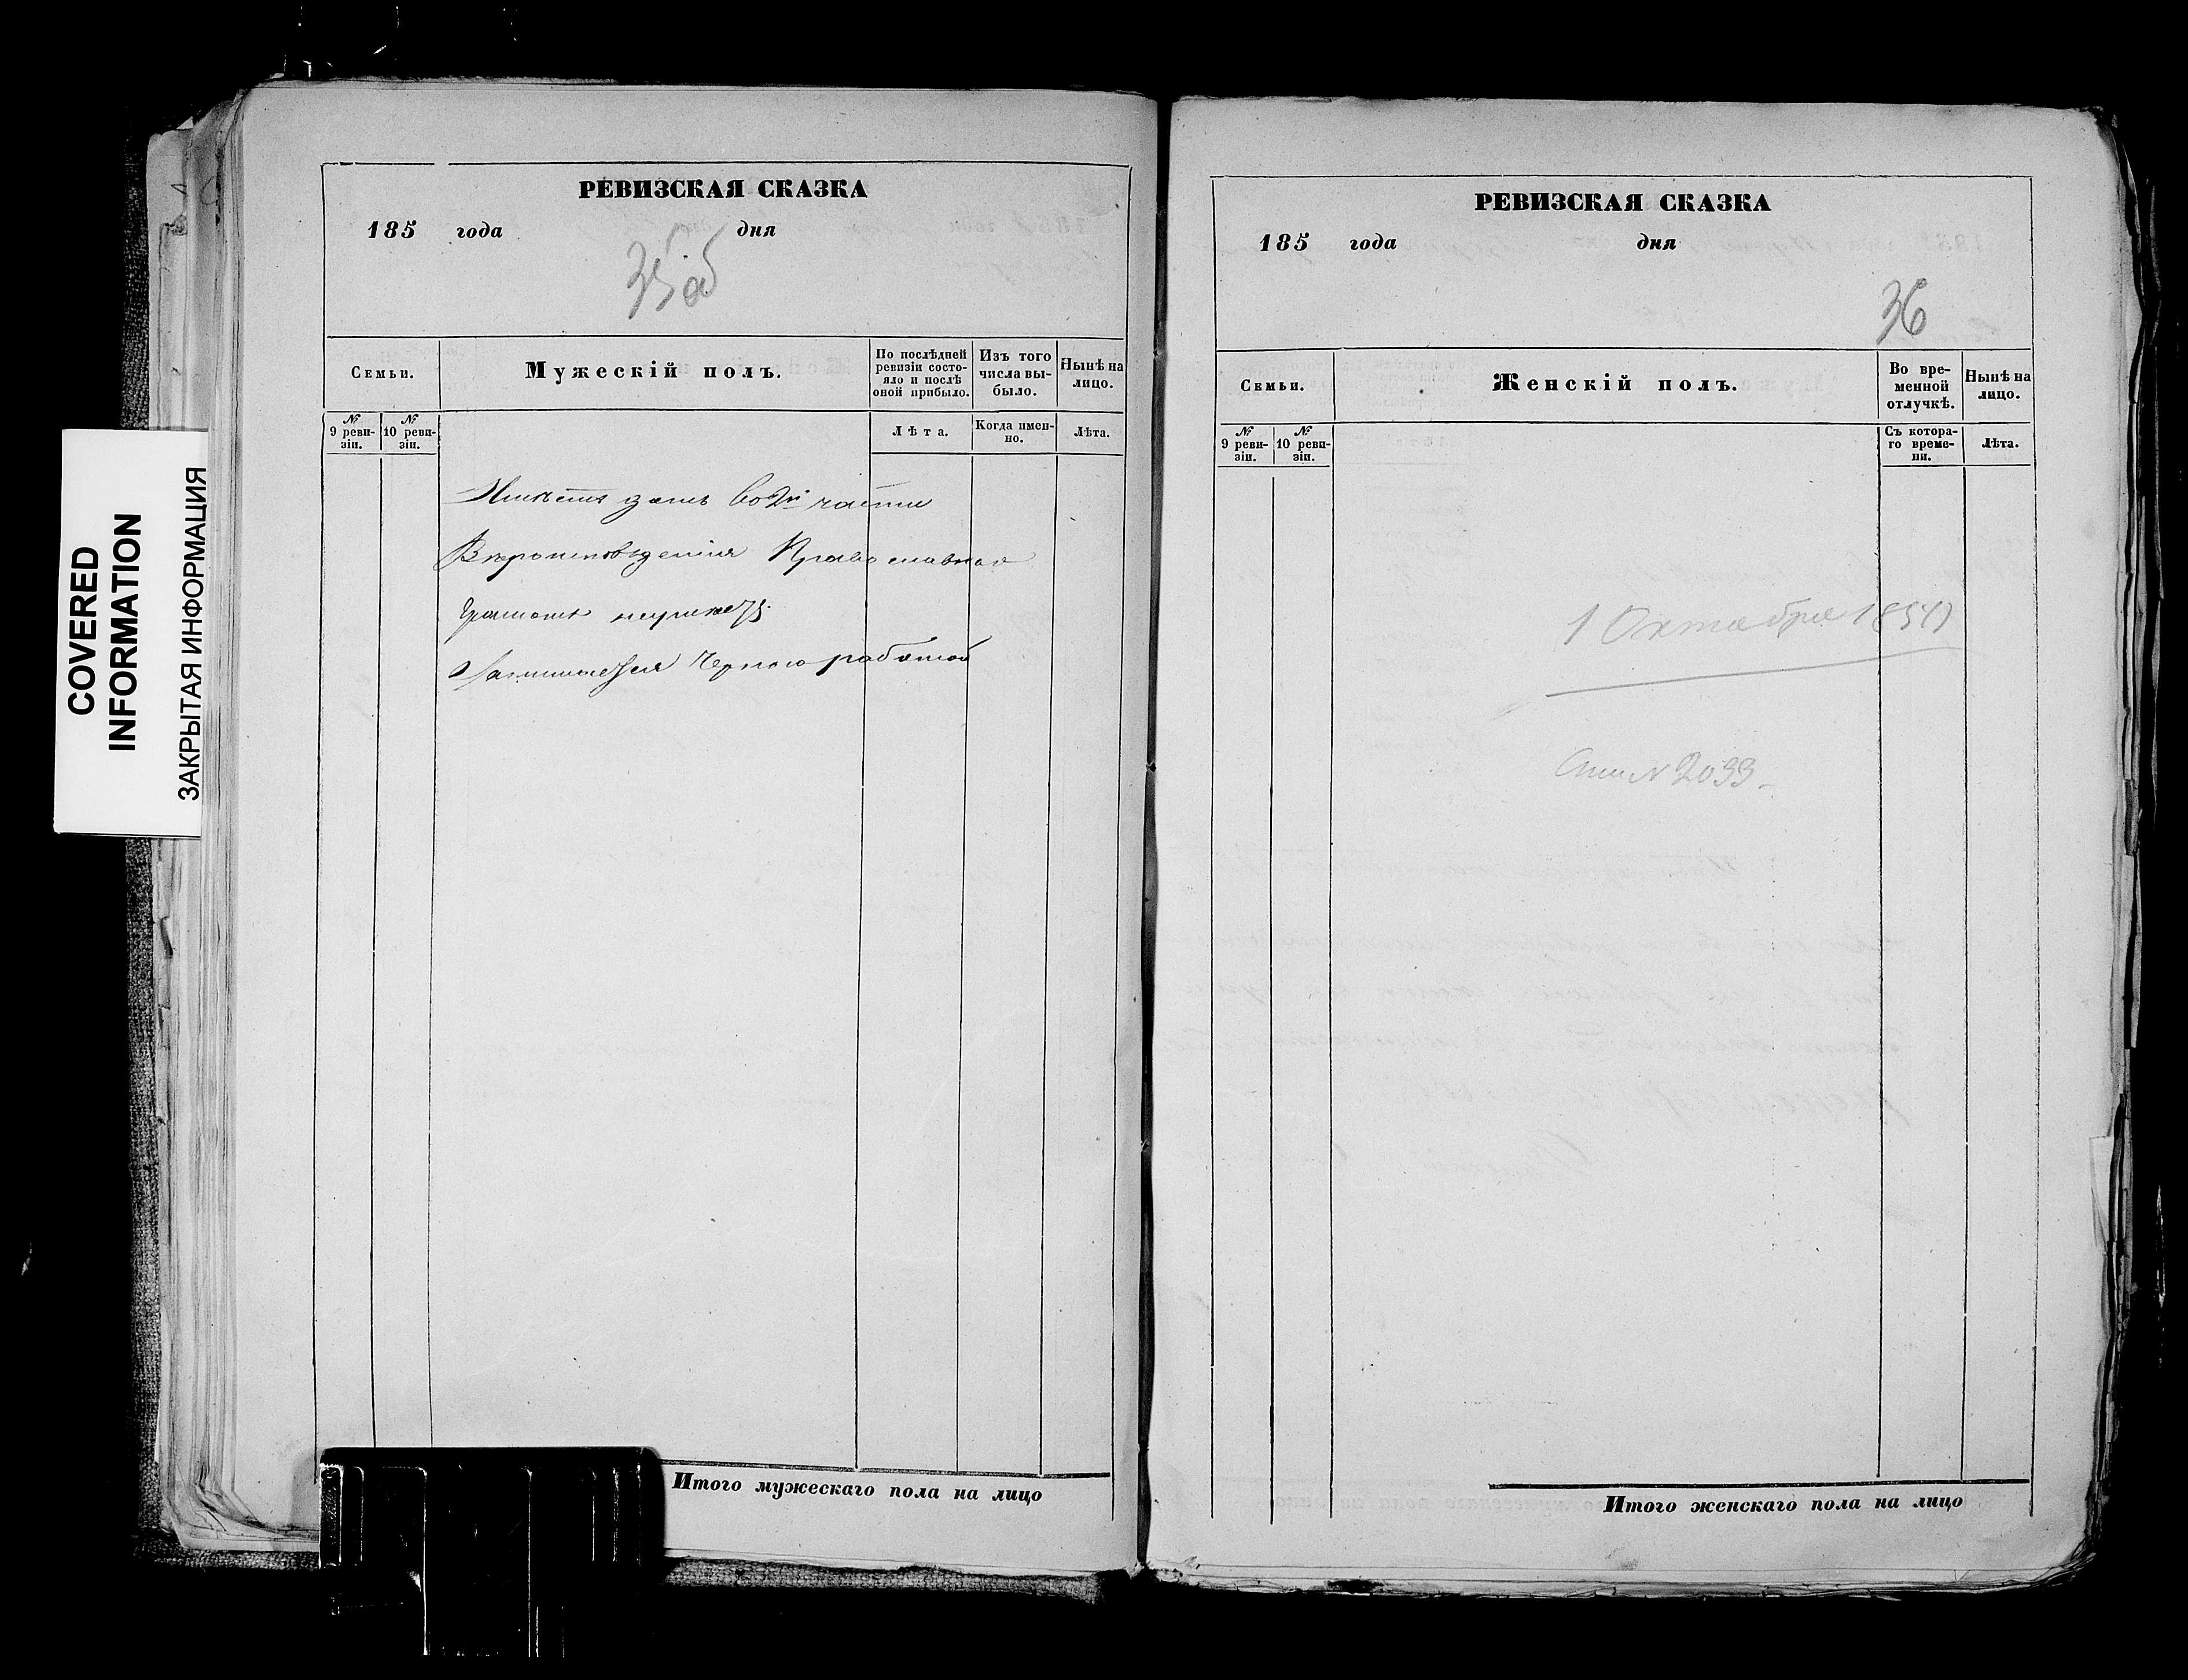 COVERED
INFORMATION
ЗАКРЫТАЯ ИНФОРМАЦИЯ
РЕВИЗСКАЯ СКАЗКА
185 года дня
35 об
Семьи.
Мужескій полъ.
По послѣдней ревизіи состояло и послѣ оной прибыло.
Изъ того числа выбыло.
Нынѣ на лицо.
№ 9 ревизіи.
№ 10 ревизіи.
Лѣта.
Когда именно.
Лѣта.
Имѣетъ домъ во 2й части
Вѣроисповѣденія Православная
Грамотѣ неумѣетъ
Занимается Черною работой
Итого мужескаго пола на лицо
РЕВИЗСКАЯ СКАЗКА
185 года дня
36
Семьи.
Женскій полъ.
Во временной отлучкѣ.
Нынѣ на лицо.
№ 9 ревизіи.
№ 10 ревизіи.
Съ котораго времени.
Лѣта.
1 Октября
№ 2033
Итого женскаго пола на лицо